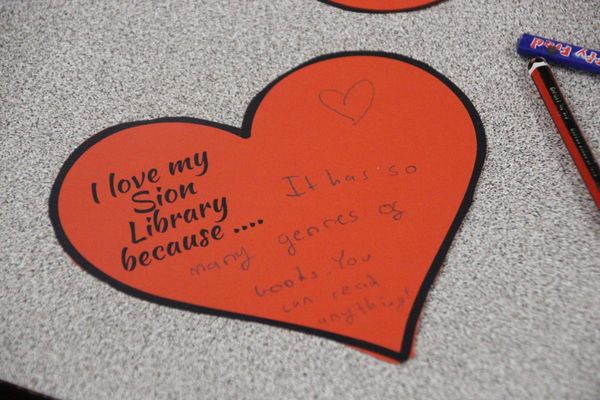 I love my
Sion
Library
because ....
It has so
many genres of
books. You
can read
anything!